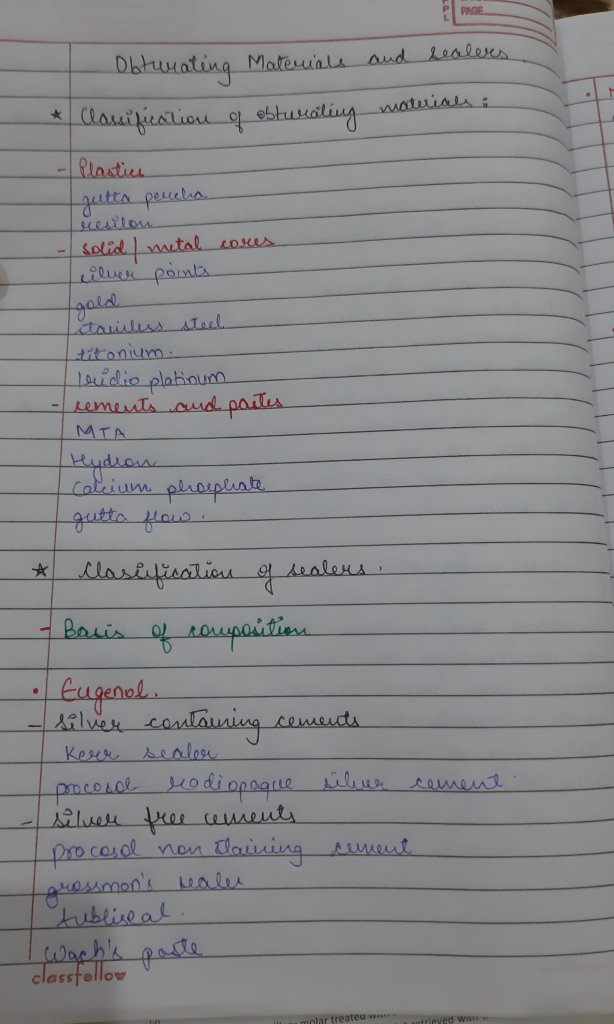 PAGE
Obturating Materials and sealers
* Classification of obturating materials :
- Plastics
gutta percha
resilon
- solid / metal cores
silver points
gold
stainless steel
titonium.
Iridio platinum
- cements and pastes
MTA
Hydron
Calcium phosphate
gutta flow.
* Classification of sealers.
- Basis of composition
• Eugenol.
- silver containing cements
Kerr sealer
procosol radiopaque silver cement.
- silver free cements
procosol non staining cement
grossmon's sealer
tubliseal.
Wach's paste
classfellow
molar treated